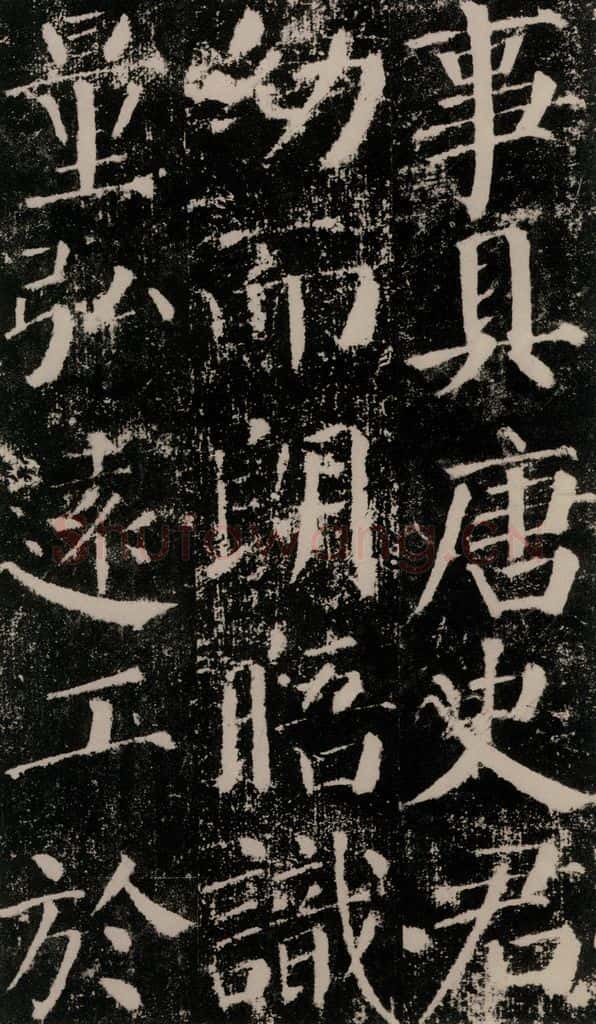 事具唐史君
幼而朗晤識
量弘遠工於
Shufawang.CN